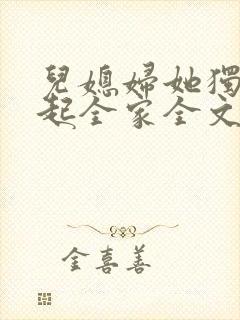 兒媳婦她獨
起全家全文
金喜善